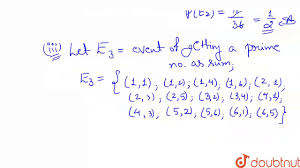 P(E2) = 18/36 = 1/2
(iii) Let E3 = event of getting a prime
no. as sum,
E3 = { (1,1), (1,2), (1,4), (1,6), (2,1)
(2,3), (2,5), (3,2), (3,4), (4,1),
(4,3), (5,2), (5,6), (6,1), (6,5) }